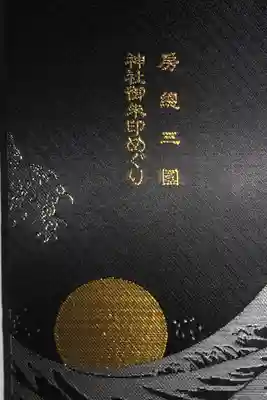 房總三國
神社御朱印めぐり